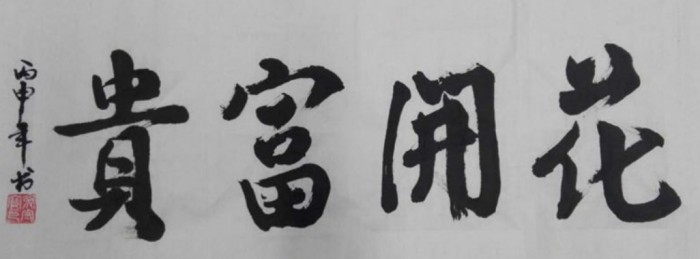 花開富貴
丙申年书